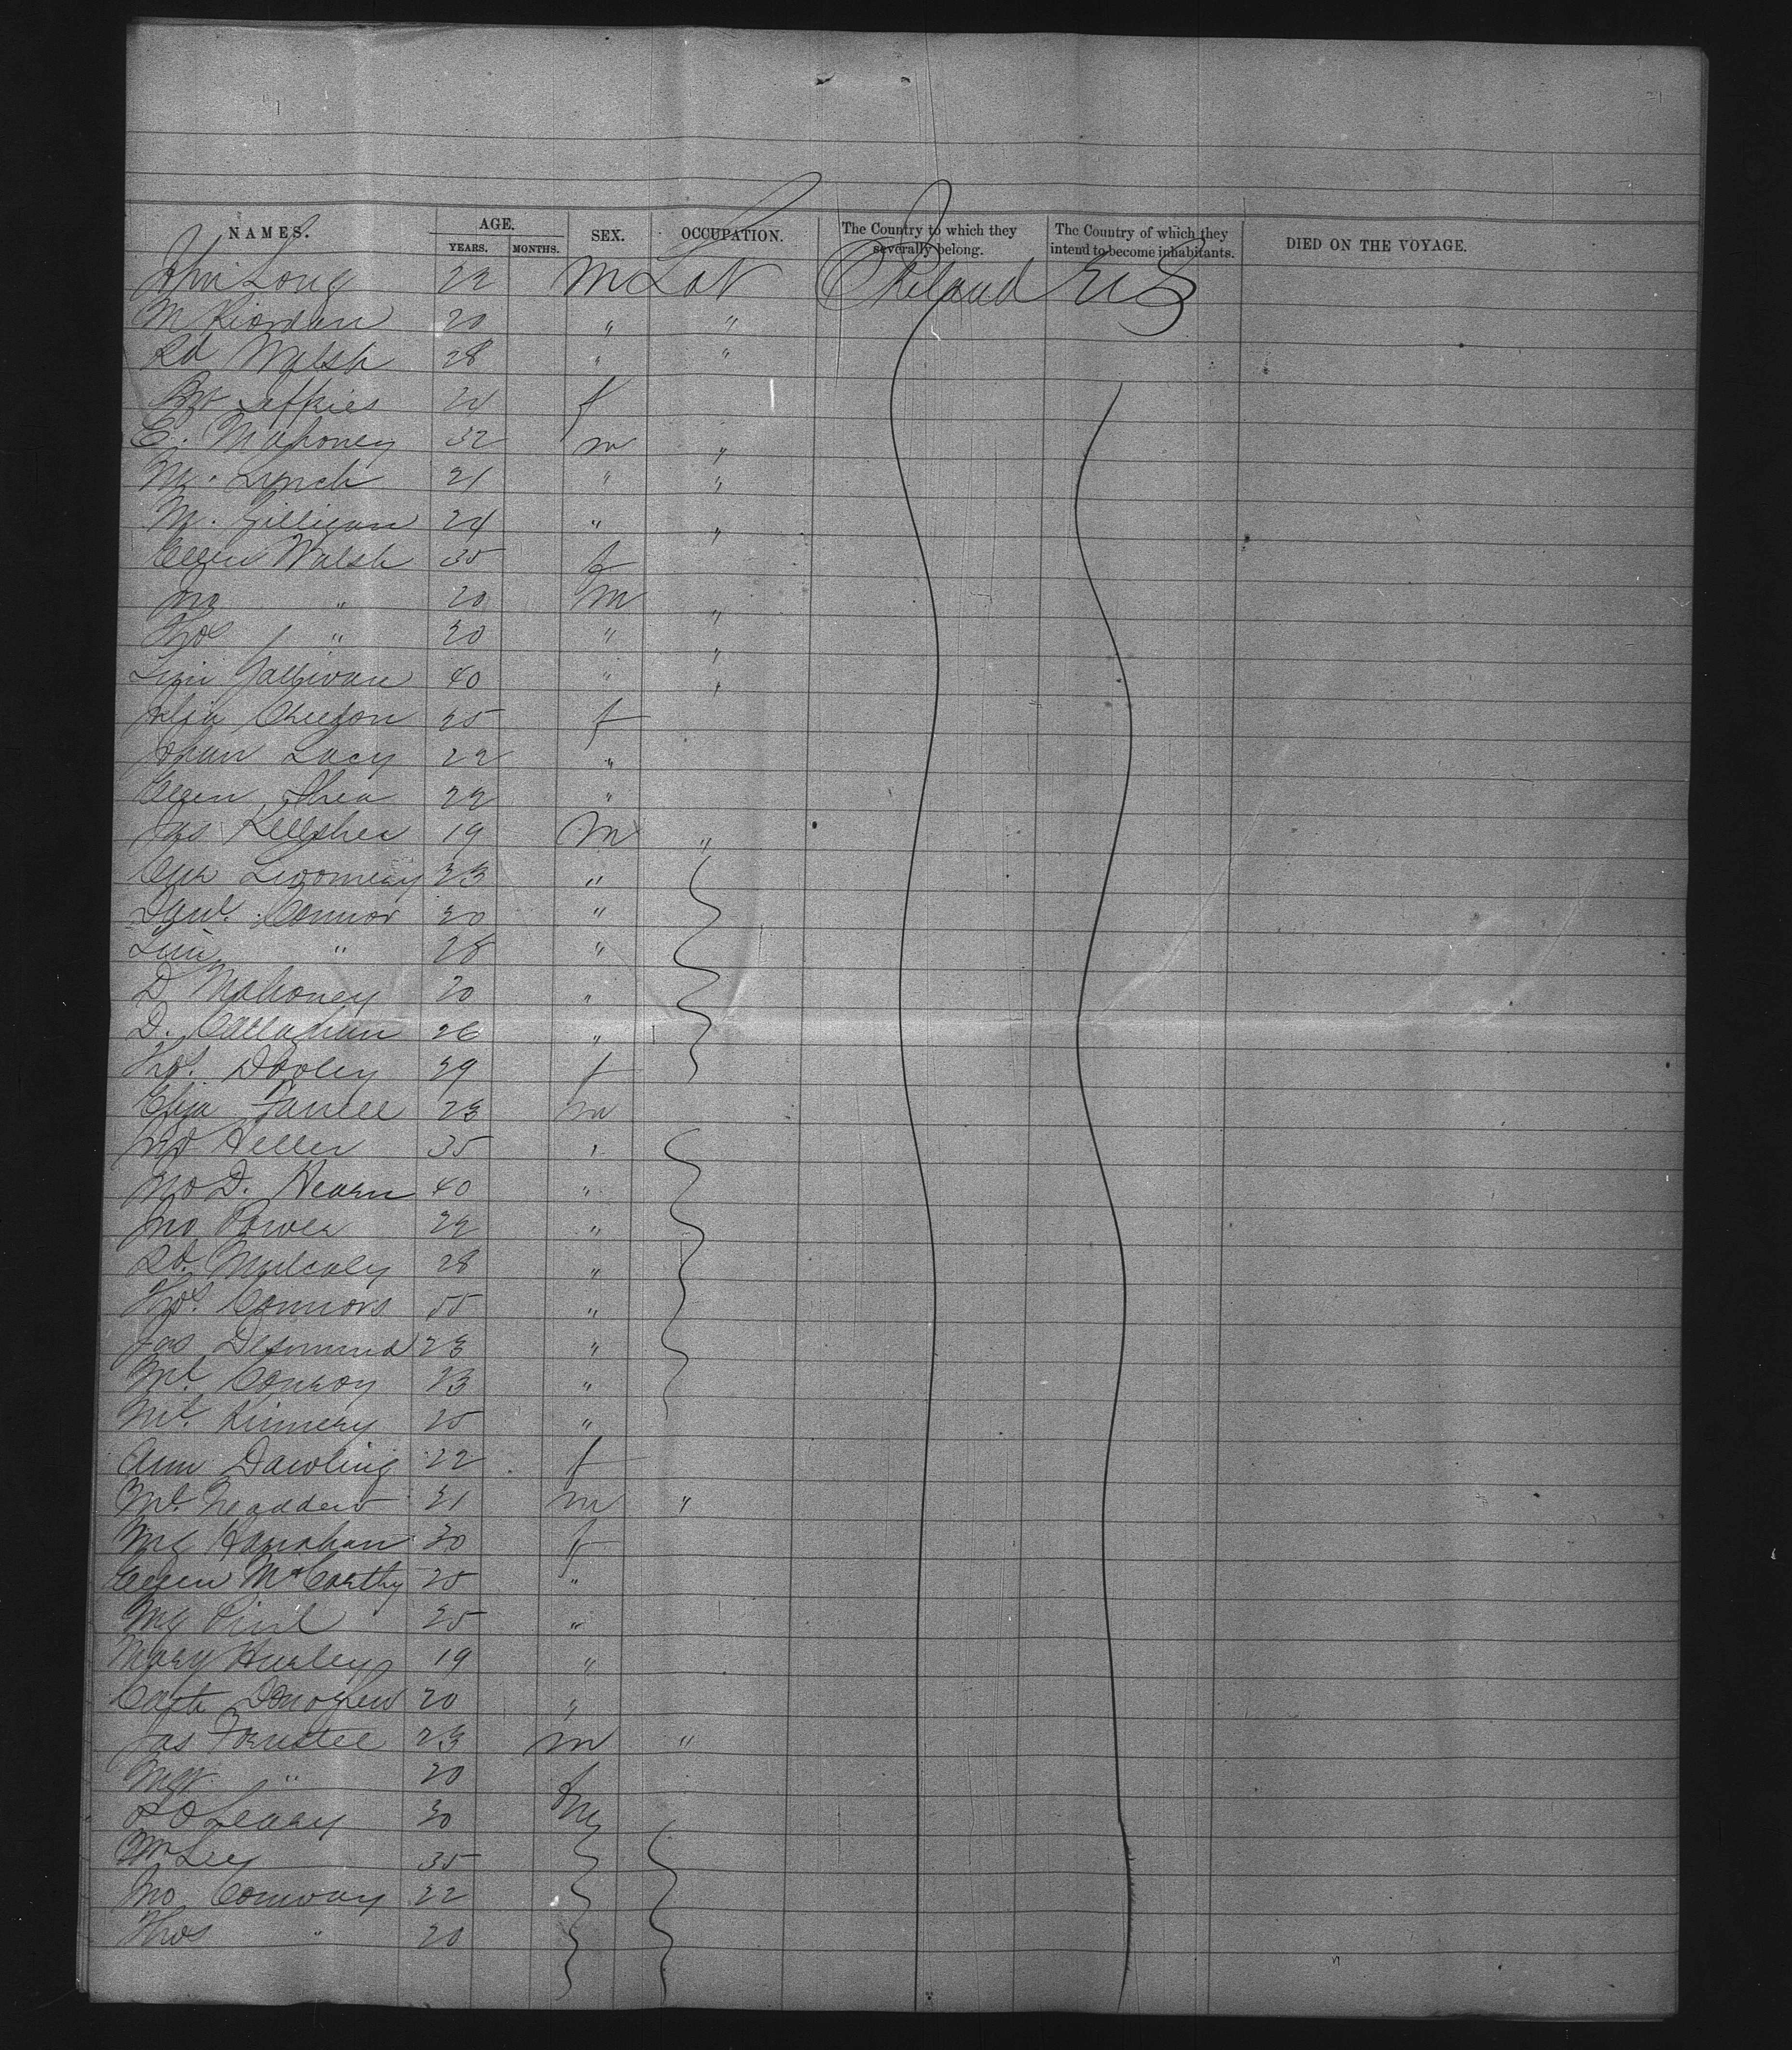 NAMES. AGE. YEARS. MONTHS. SEX. OCCUPATION. The Country to which they severally belong. The Country of which they intend to become inhabitants. DIED ON THE VOYAGE.
John Long 22 M Lab Ireland U S
M Riordan 20 " "
Rd Walsh 28 " "
Jeffries 24 f
E. Mahoney 32 m "
Lynch 21 " "
M. Gilligan 24 " "
Ellen Walsh 35 f
Jno " 20 M "
Thos " 20 " "
Gallivan 40 " "
25 f
Johan Lacy 22 "
Ellen Shea 22 "
Jas Kellsher 19 M "
Twomey 23 "
Danl. Connor 20 "
" 28 "
D Mahoney 20 "
D. Callaghan 26 "
Thos. Dooley 29 f
Eliza Farrell 23 m
35 "
Jno D. Hearn 40 "
Jno Power 22 "
Rd. Mulcaly 28 "
Thos. Connors 55 "
Jas Desmond 23 "
Ml Conroy 23 "
Ml. Kinnery 25 "
Ann Dawling 22 f
Ml. Madden 21 m "
Mg Hanahan 30 f
Ellen McCarthy 25 "
Mg 25 "
Mary Hurley 19 "
Cath 20 "
Jas 23 m "
" 20 f
O Leary 30 m
Wm Lee 35
Jno Conway 22
Thos " 20